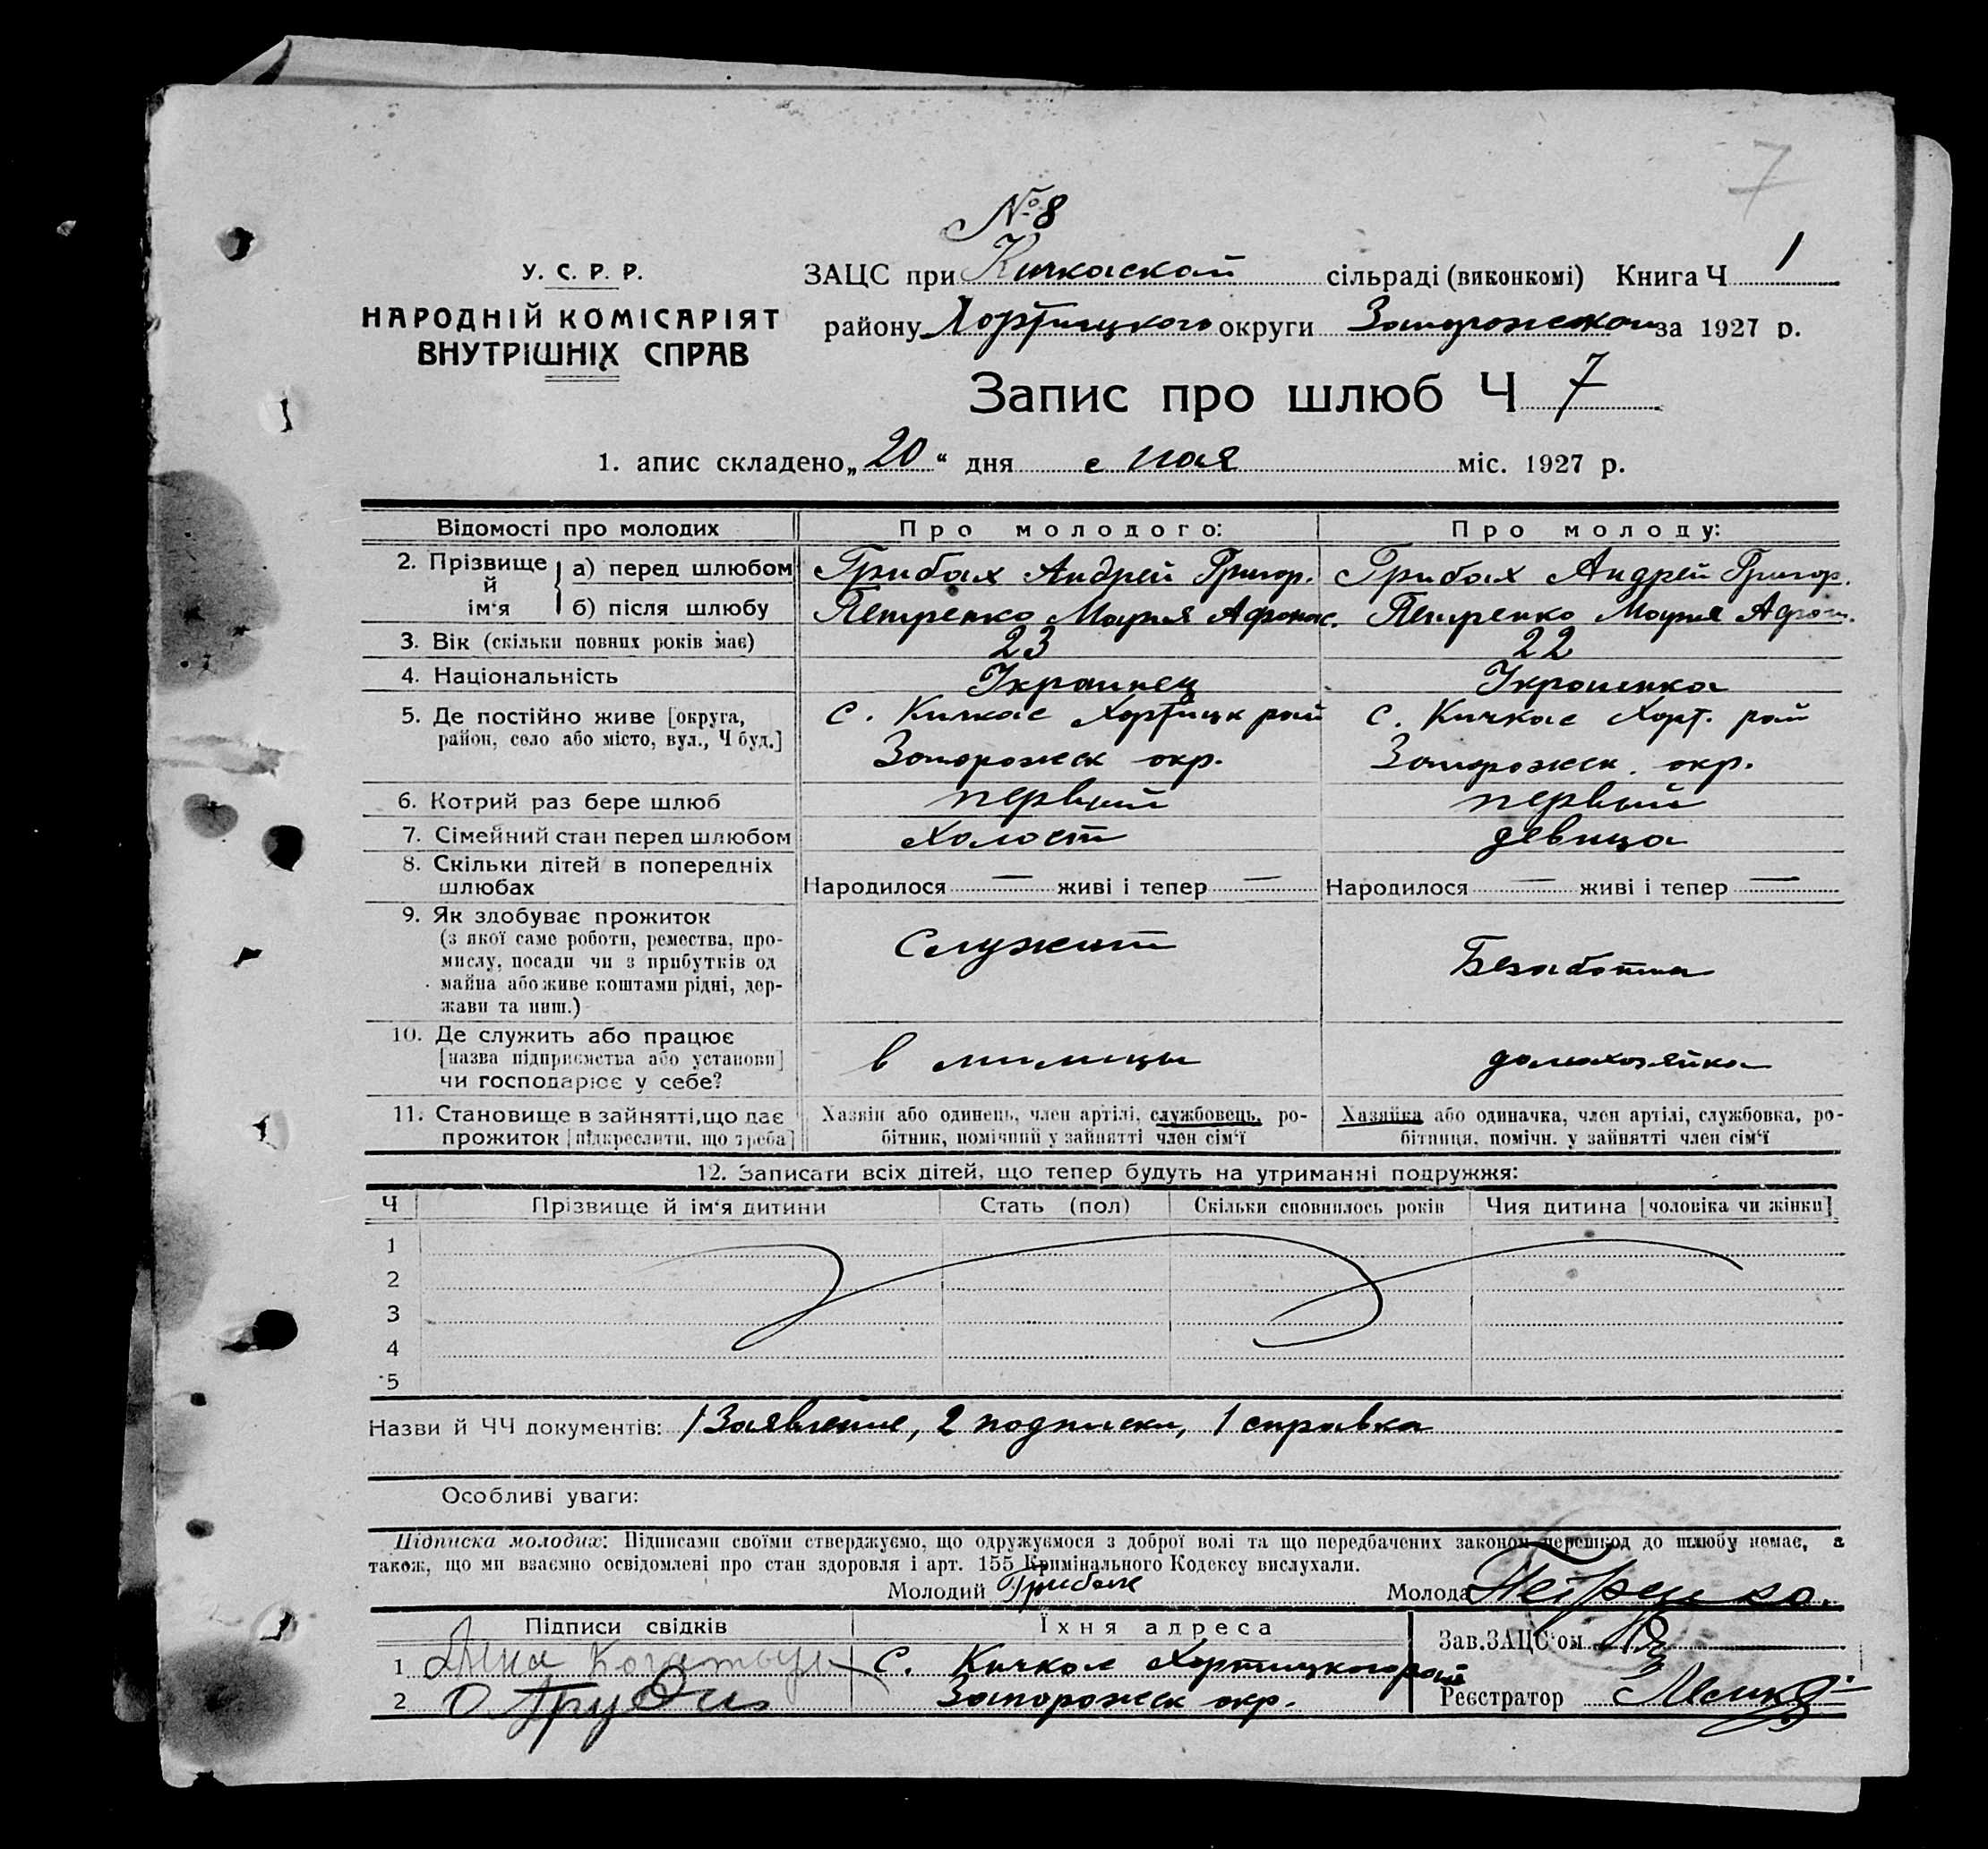 7
№ 8
У. С. Р. Р.
НАРОДНІЙ КОМІСАРІЯТ
ВНУТРІШНІХ СПРАВ
ЗАЦС при Кичкаской сільраді (виконкомі) Книга Ч 1
району Хортицкого округи Запорожской за 1927 р.
Запис про шлюб Ч 7
1. апис складено „20“ дня с мая міс. 1927 р.
Відомості про молодих Про молодого: Про молоду:
2. Прізвище й ім‘я а) перед шлюбом Грибах Андрей Григор. Грибах Андрей Григор.
б) після шлюбу Петренко Мария Афонас. Петренко Мария Афон.
3. Вік (скільки повних років має) 23 22
4. Національність Украинец Украинка
5. Де постійно живе [округа, с. Кичкас Хортицк рай с. Кичкас Хорт. рай
район, село або місто, вул., Ч буд.] Запорожск окр. Запорожск. окр.
6. Котрий раз бере шлюб первый первый
7. Сімейний стан перед шлюбом холост девица
8. Скільки дітей в попередніх
шлюбах Народилося — живі і тепер — Народилося — живі і тепер —
9. Як здобуває прожиток
(з якої саме роботи, ремества, про-
мислу, посади чи з прибутків од
майна або живе коштами рідні, дер-
жави та инш.)
Служит Безаботна
10. Де служить або працює
[назва підприємства або установи]
чи господарює у себе?
в милицы домахозяйка
11. Становище в зайнятті, що дає Хазяїн або одинець, член артілі, службовець, ро- Хазяйка або одиначка, член артілі, службовка, ро-
прожиток [підкреслити, що треба] бітник, помічний у зайнятті член сім‘ї бітниця, помічн. у зайнятті член сім‘ї
12. Записати всіх дітей, що тепер будуть на утриманні подружжя:
Ч Прізвище й ім‘я дитини Стать (пол) Скільки сповнилось років Чия дитина [чоловіка чи жінки]
1
2
3
4
5
Назви й ЧЧ документів: 1 Заявление, 2 подписки, 1 справка
Особливі уваги:
Підписка молодих: Підписами своїми стверджуємо, що одружуємося з доброї волі та що передбачених законом перешкод до шлюбу немає, а
також, що ми взаємно освідомлені про стан здоровля і арт. 155 Кримінального Кодексу вислухали.
Молодий Грибах Молода Петренко.
Підписи свідків Їхня адреса Зав. ЗАЦС‘ом
1 Анна с. Кичкас Хортицкого рай
2 Запорожск окр. Реєстратор